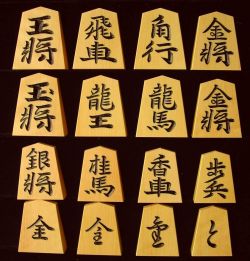 王将 飛車 角行 金将
玉将 龍王 龍馬 金将
銀将 桂馬 香車 歩兵
と